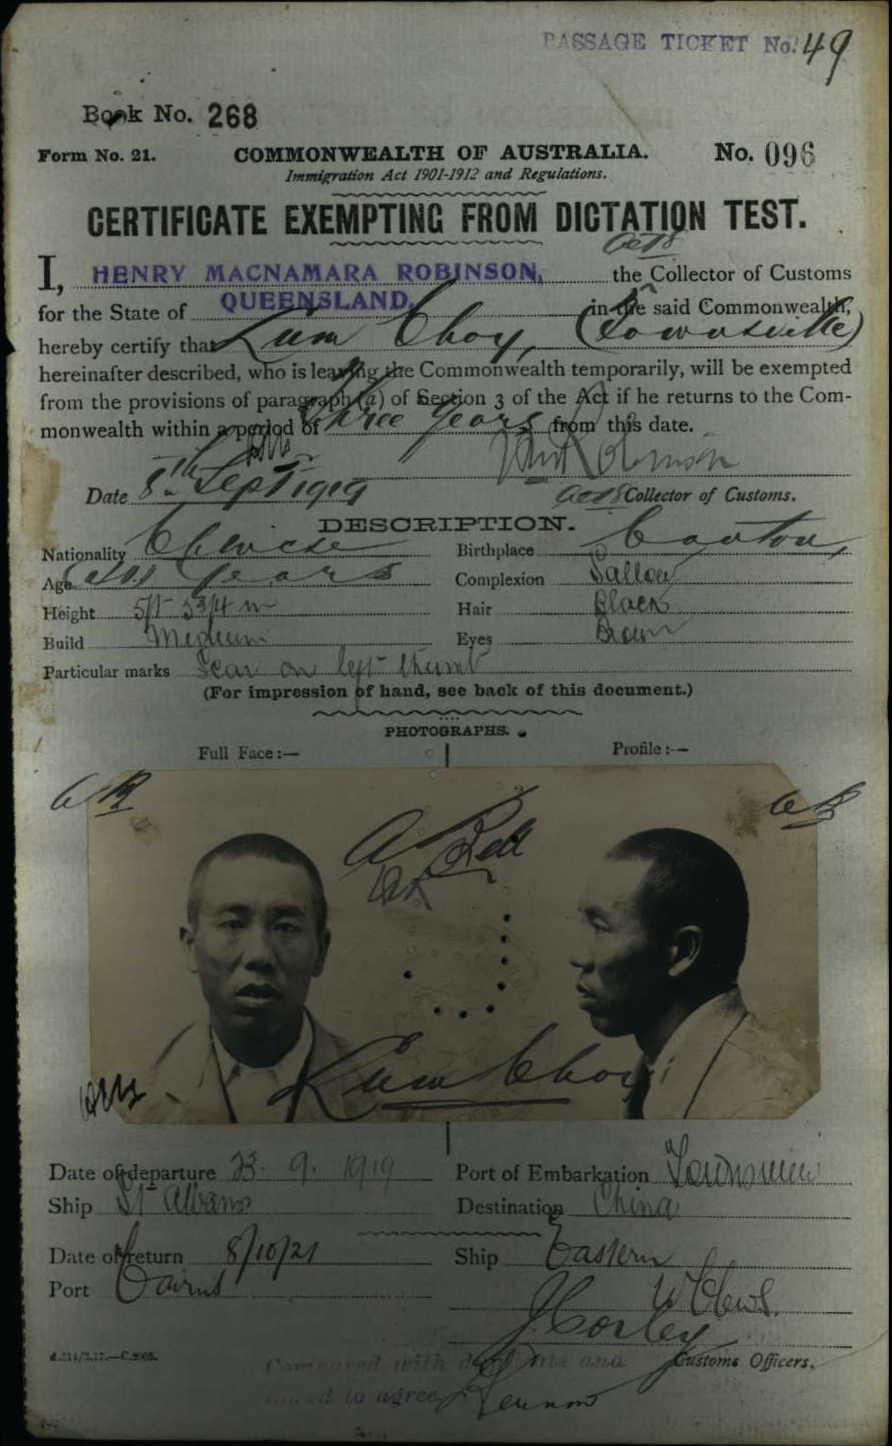 PASSAGE TICKET No. 49
Book No. 268
Form No. 21. COMMONWEALTH OF AUSTRALIA. No. 096
Immigration Act 1901-1912 and Regulations.
CERTIFICATE EXEMPTING FROM DICTATION TEST.
I, HENRY MACNAMARA ROBINSON, the Collector of Customs
for the State of QUEENSLAND. in the said Commonwealth,
hereby certify that Lum Choy, (Townsville)
hereinafter described, who is leaving the Commonwealth temporarily, will be exempted
from the provisions of paragraph (a) of Section 3 of the Act if he returns to the Com-
monwealth within a period of Three years from this date.
Robinson
Date 8th Sept 1919 Collector of Customs.
DESCRIPTION.
Nationality Chinese Birthplace Canton,
Age years Complexion Sallow
Height 5ft 5 3/4 in Hair Black
Build Medium Eyes Brown
Particular marks Scar on left thumb
(For impression of hand, see back of this document.)
PHOTOGRAPHS.
Full Face:— Profile:—
Lum Choy
Date of departure 23. 9. 1919 Port of Embarkation Townsville
Ship St Albans Destination China
Date of return 8/10/21 Ship Eastern
Port Cairns
Customs Officers.
Compared with duplicate and
found to agree